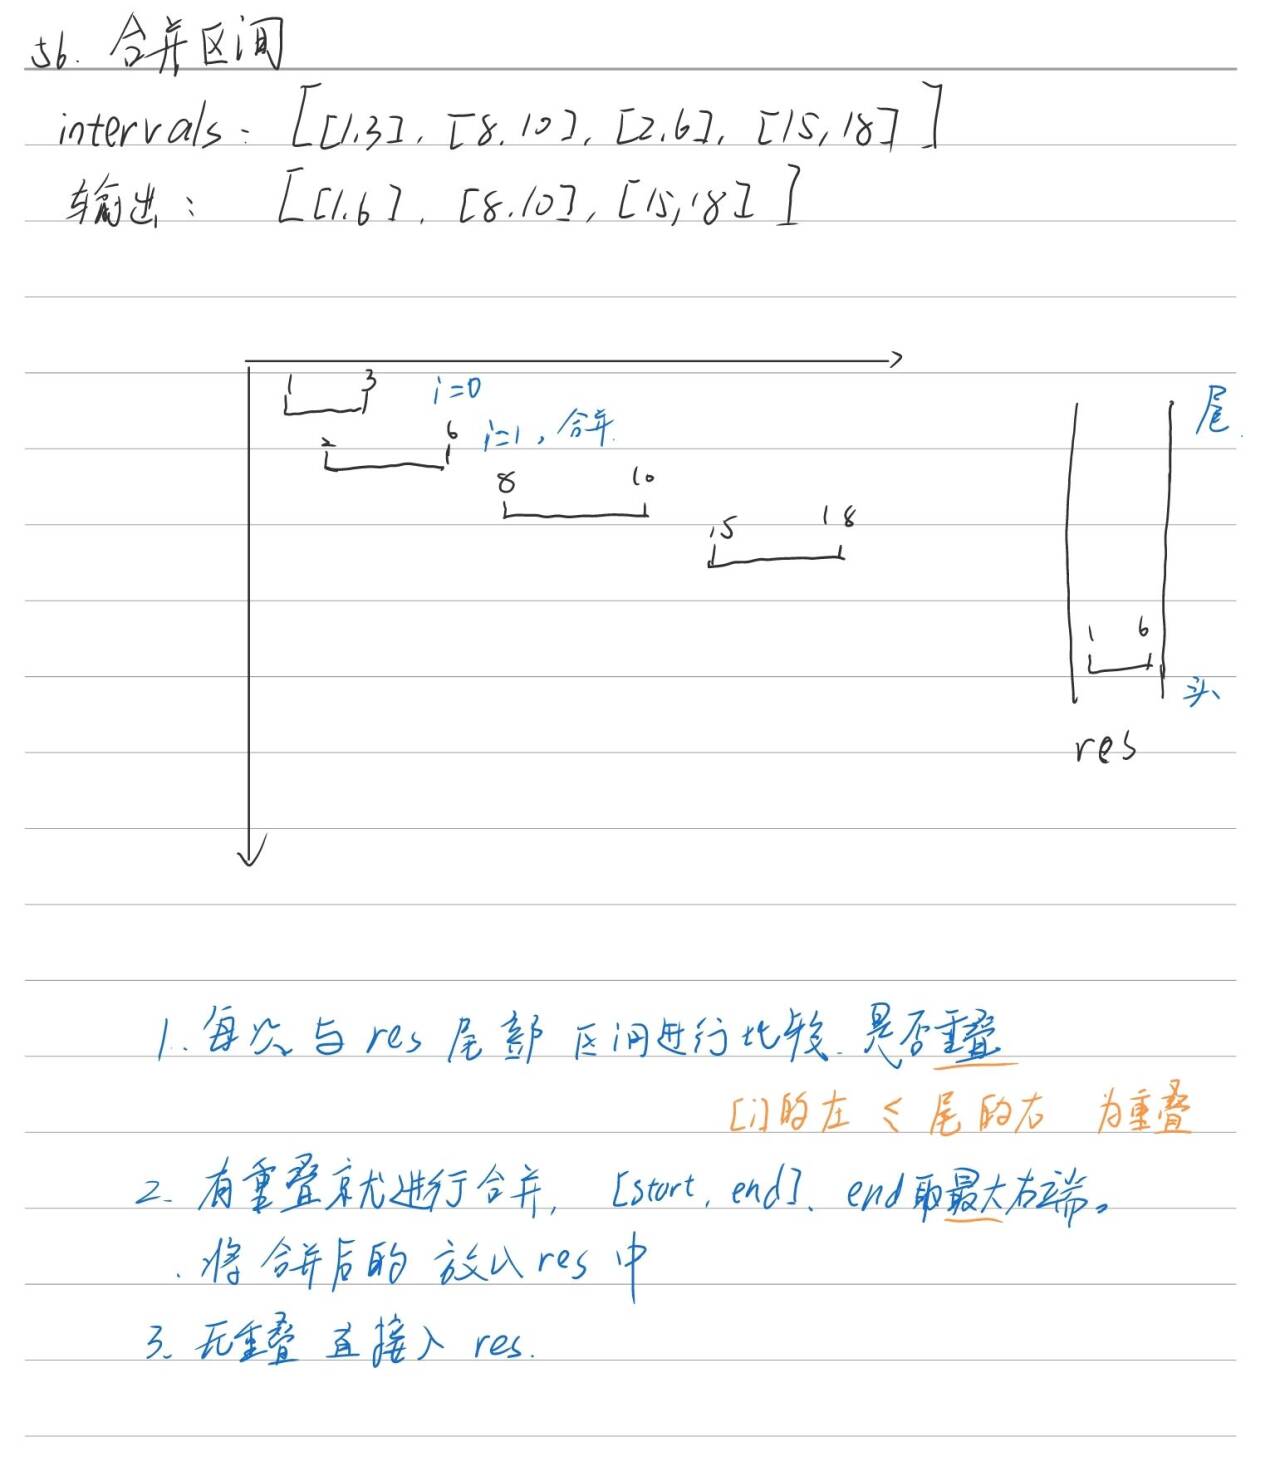 56. 合并区间
intervals: [[1,3], [8,10], [2,6], [15,18]]
输出: [[1,6], [8,10], [15,18]]
1 3 i=0
2 6 i=1, 合并.
8 10
15 18
尾.
1 6
头
res
1. 每次与 res 尾部 区间进行比较. 是否重叠
[i]的左 ≤ 尾的右 为重叠
2. 有重叠就进行合并, [start, end]. end取最大右端。
. 将合并后的 放入 res 中
3. 无重叠 直接入 res.